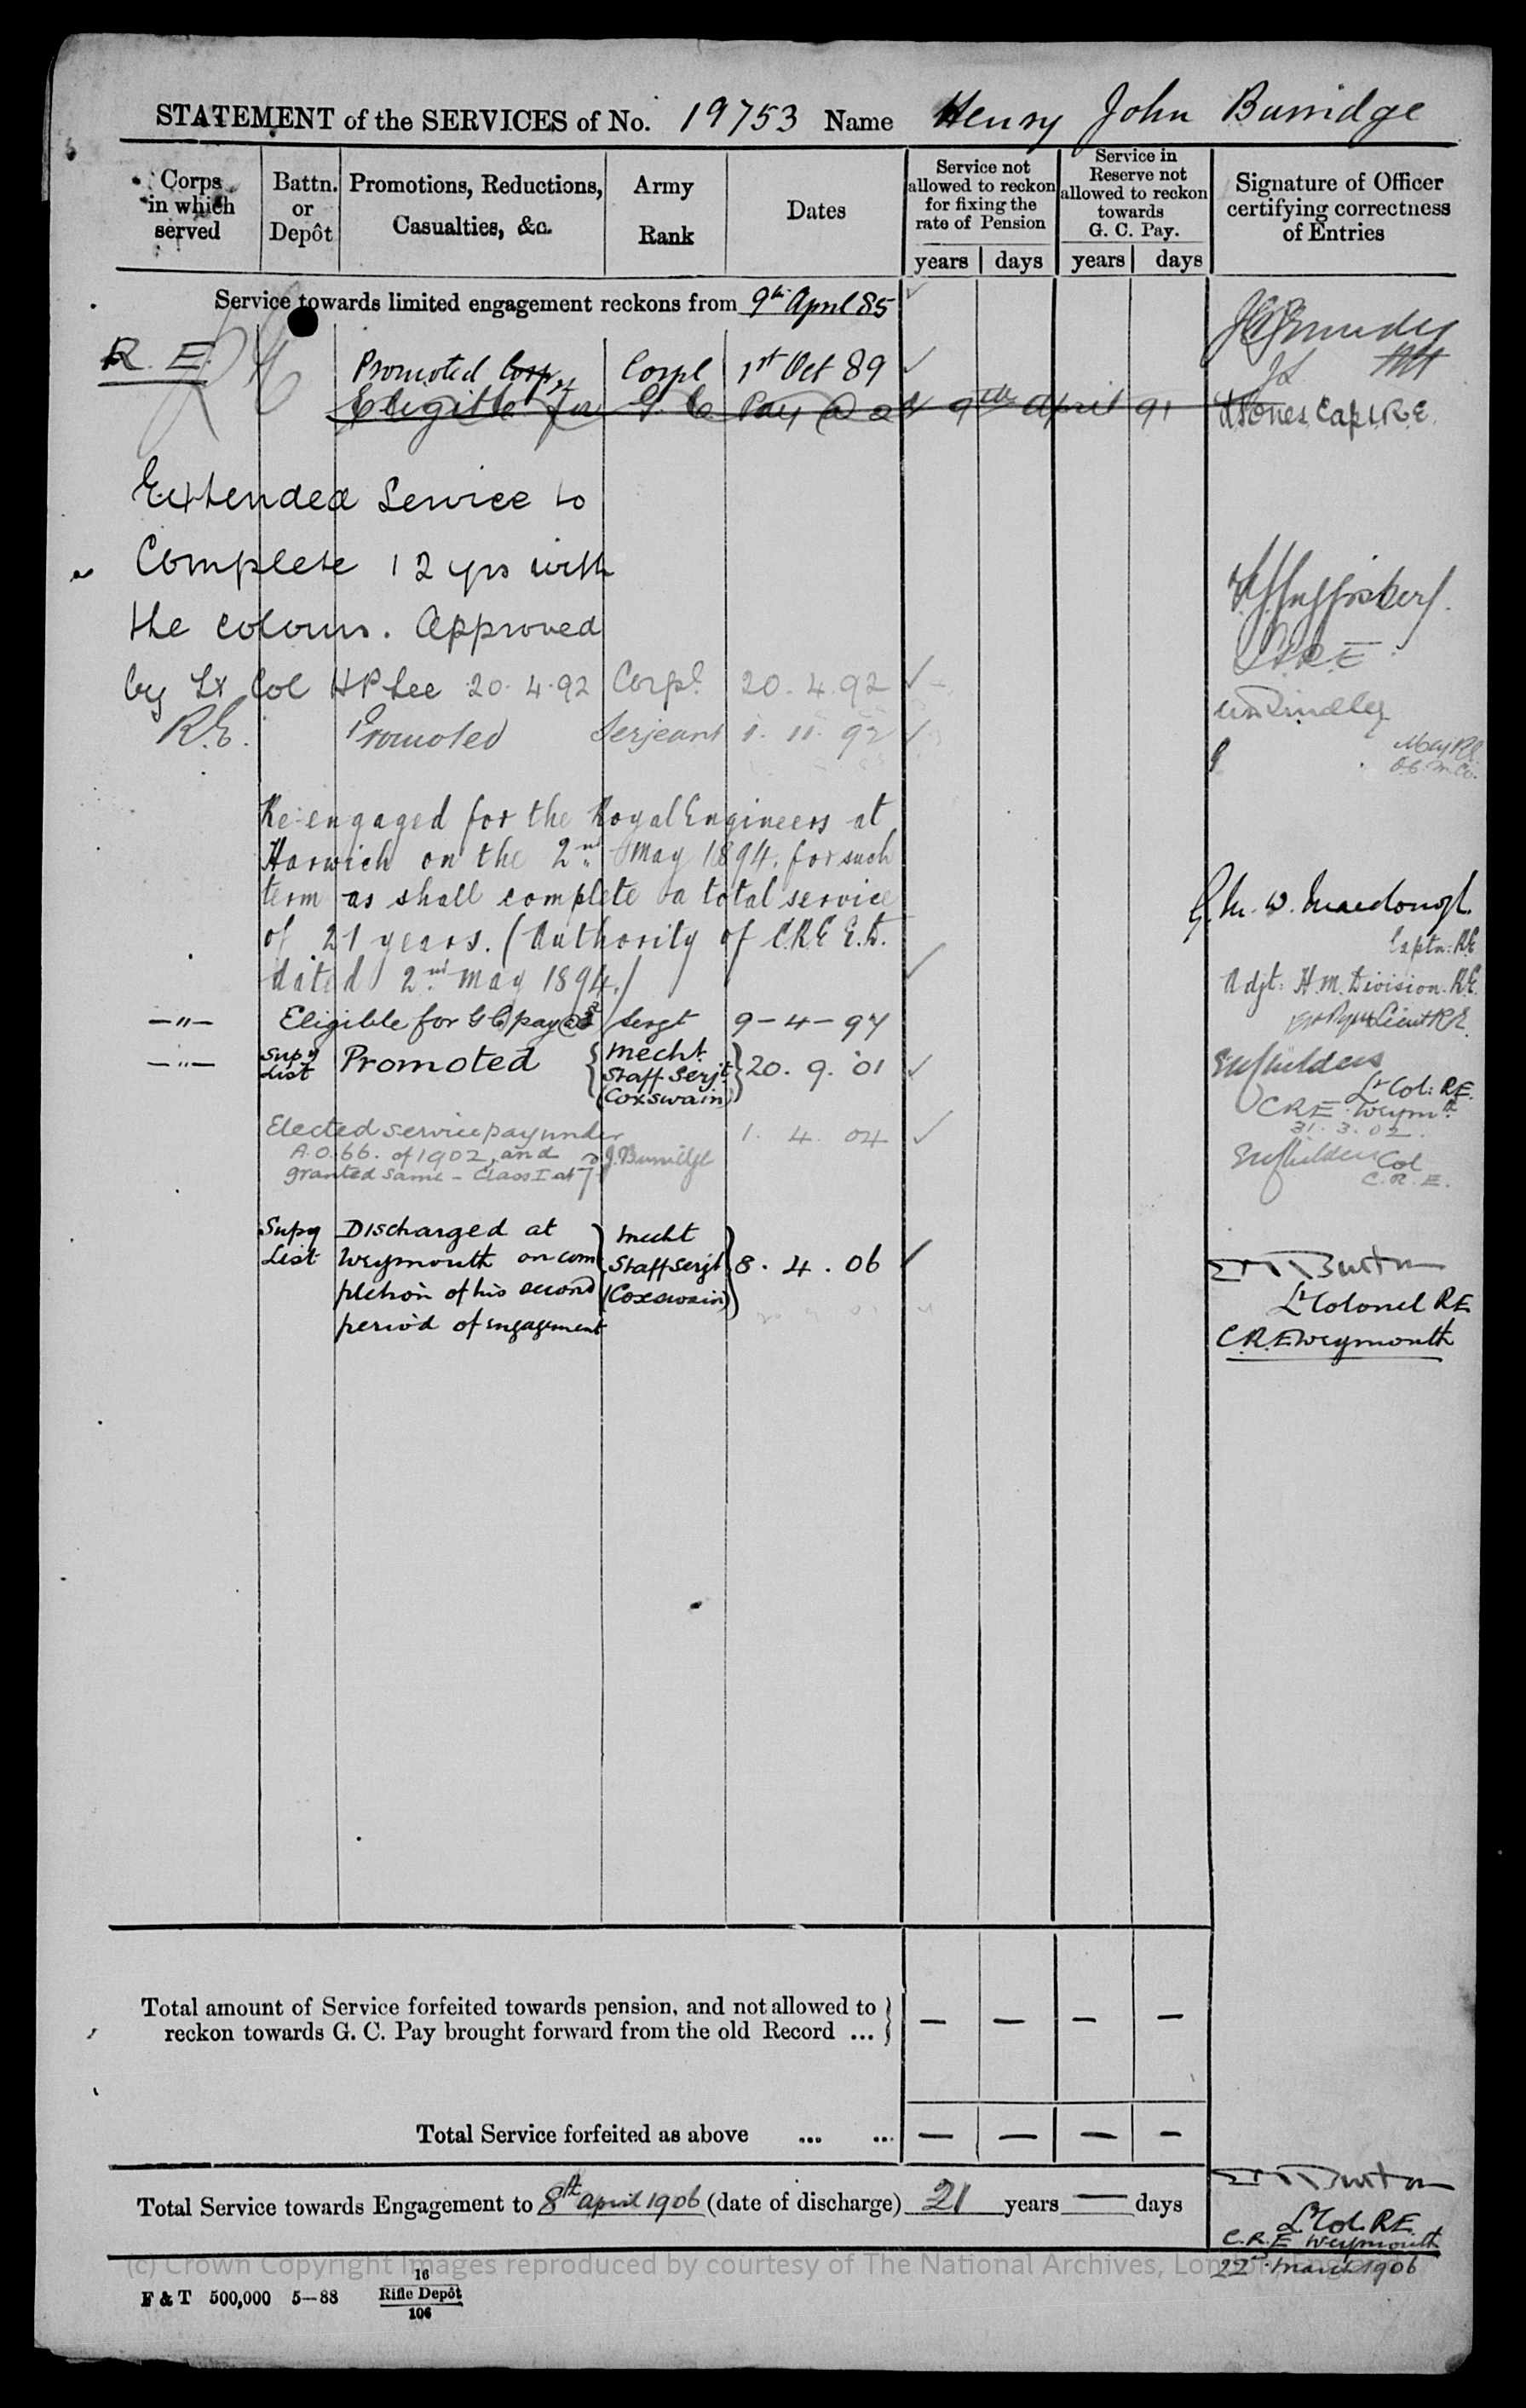 STATEMENT of the SERVICES of No. 19753 Name Henry John Burridge
Corps in which served
Battn. or Depôt
Promotions, Reductions, Casualties, &c.
Army Rank
Dates
Service not allowed to reckon for fixing the rate of Pension
years days
Service in Reserve not allowed to reckon towards G. C. Pay.
years days
Signature of Officer certifying correctness of Entries
Service towards limited engagement reckons from 9th April 85
R. E. Promoted Corp. Corpl 1st Oct 89
Eligible for G. C. Pay @ 2d 9th April 91 Jones Capt R.E.
Extended Service to
Complete 12 yrs with
the colours. Approved
by Lt Col HP Lee 20.4.92 Corpl. 20.4.92
R.E. Promoted Serjeant 1.11.92
Maj RE
Re-engaged for the Royal Engineers at
Harwich on the 2nd May 1894. for such
term as shall complete a total service
of 21 years. (Authority of C.R.E. E.D.
dated 2nd May 1894.)
G. M. W. Macdonogh
Captn: RE
Adjt: H.M. Division. R.E.
—"— Eligible for G C pay @ Sergt 9-4-97 Lieut RE
—"— Supy List Promoted { Mecht. Staff Serjt. (Coxswain) } 20.9.01
Lt Col: RE.
CRE Weymth
31.3.02.
Elected service pay under
A.O. 66. of 1902, and
granted same - Class I at
J. Burridge
1.4.04
Col
C.R.E.
Supy List
Discharged at
Weymouth on com
pletion of his second
period of engagement
Mecht
Staff Serjt
(Coxswain)
8.4.06
Burton
Lt Colonel RE
C.R.E Weymouth
Total amount of Service forfeited towards pension, and not allowed to
reckon towards G. C. Pay brought forward from the old Record ... — — — —
Total Service forfeited as above ... ... — — — —
Total Service towards Engagement to 8th April 1906 (date of discharge) 21 years — days
Burton
Lt Col. RE.
C.R.E Weymouth
22nd March 1906
(c) Crown Copyright Images reproduced by courtesy of The National Archives, London
F & T 500,000 5—88
16
Rifle Depôt
106